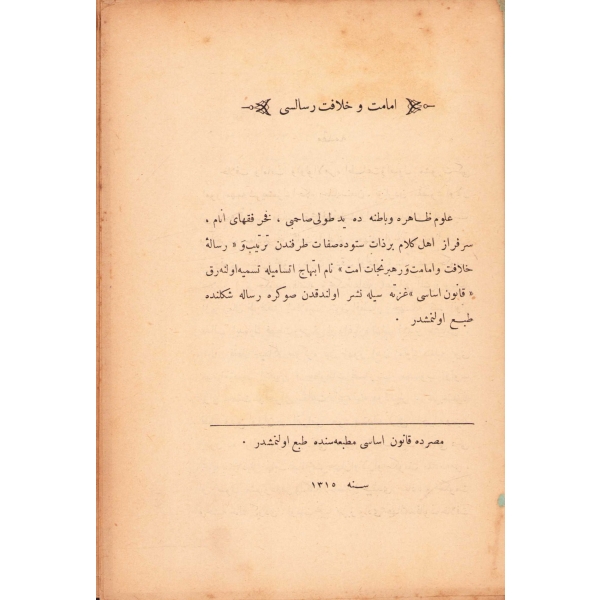 امامت و خلافت رسالسی
علوم ظاهره و باطنه ده ید طولی صاحبی ، فخر فقهای انام ،
سرفراز اهل کلام بر ذات ستوده صفات طرفندن ترتیب و « رسالهٔ
خلافت و امامت و رهبر نجات امت » نام ابتهاج اتسامیله تسمیه اولنه رق
« قانون اساسی » غزته سیله نشر اولندقدن صوکره رساله شکلنده
طبع اولنمشدر .
مصرده قانون اساسی مطبعه سنده طبع اولنمشدر .
سنه ۱۳۱۵